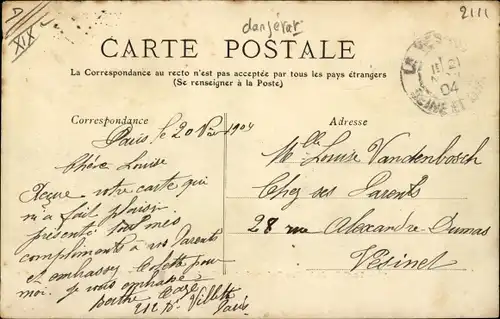 D
XIX
danjerat
2111
CARTE POSTALE
La Correspondance au recto n'est pas acceptée par tous les pays étrangers
(Se renseigner à la Poste)
LE VESINET
21
04
SEINE ET OISE
Correspondance
Adresse
Paris le 20 1904
Chère Louise
Reçue votre carte qui
m'a fait plaisir
présenté tout mes
compliments à vos Parents
et embrassez Colette pour
moi. Je vous embrasse
Berthe
212 Bd Villette
Paris
Mlle Louise Vandenbosch
Chez ses Parents
28 rue Alexandre-Dumas
Vésinet